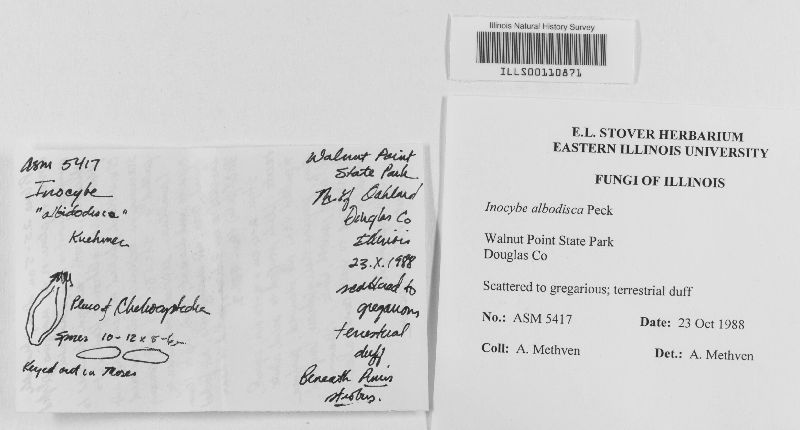 Illinois Natural History Survey
ILLS00110871
E.L. STOVER HERBARIUM
EASTERN ILLINOIS UNIVERSITY
FUNGI OF ILLINOIS
Inocybe albodisca Peck
Walnut Point State Park
Douglas Co
Scattered to gregarious; terrestrial duff
No.: ASM 5417 Date: 23 Oct 1988
Coll: A. Methven Det.: A. Methven
asm 5417
Inocybe
"albidodisca"
Kuehner
Pleuro & Cheilocystidia
Spores 10-12 x 5-6
Keyed out in
Walnut Point
State Park
N. of Oakland
Douglas Co
Illinois
23.X.1988
scattered to
gregarious
terrestrial
duff
Beneath Pinus
strobus.